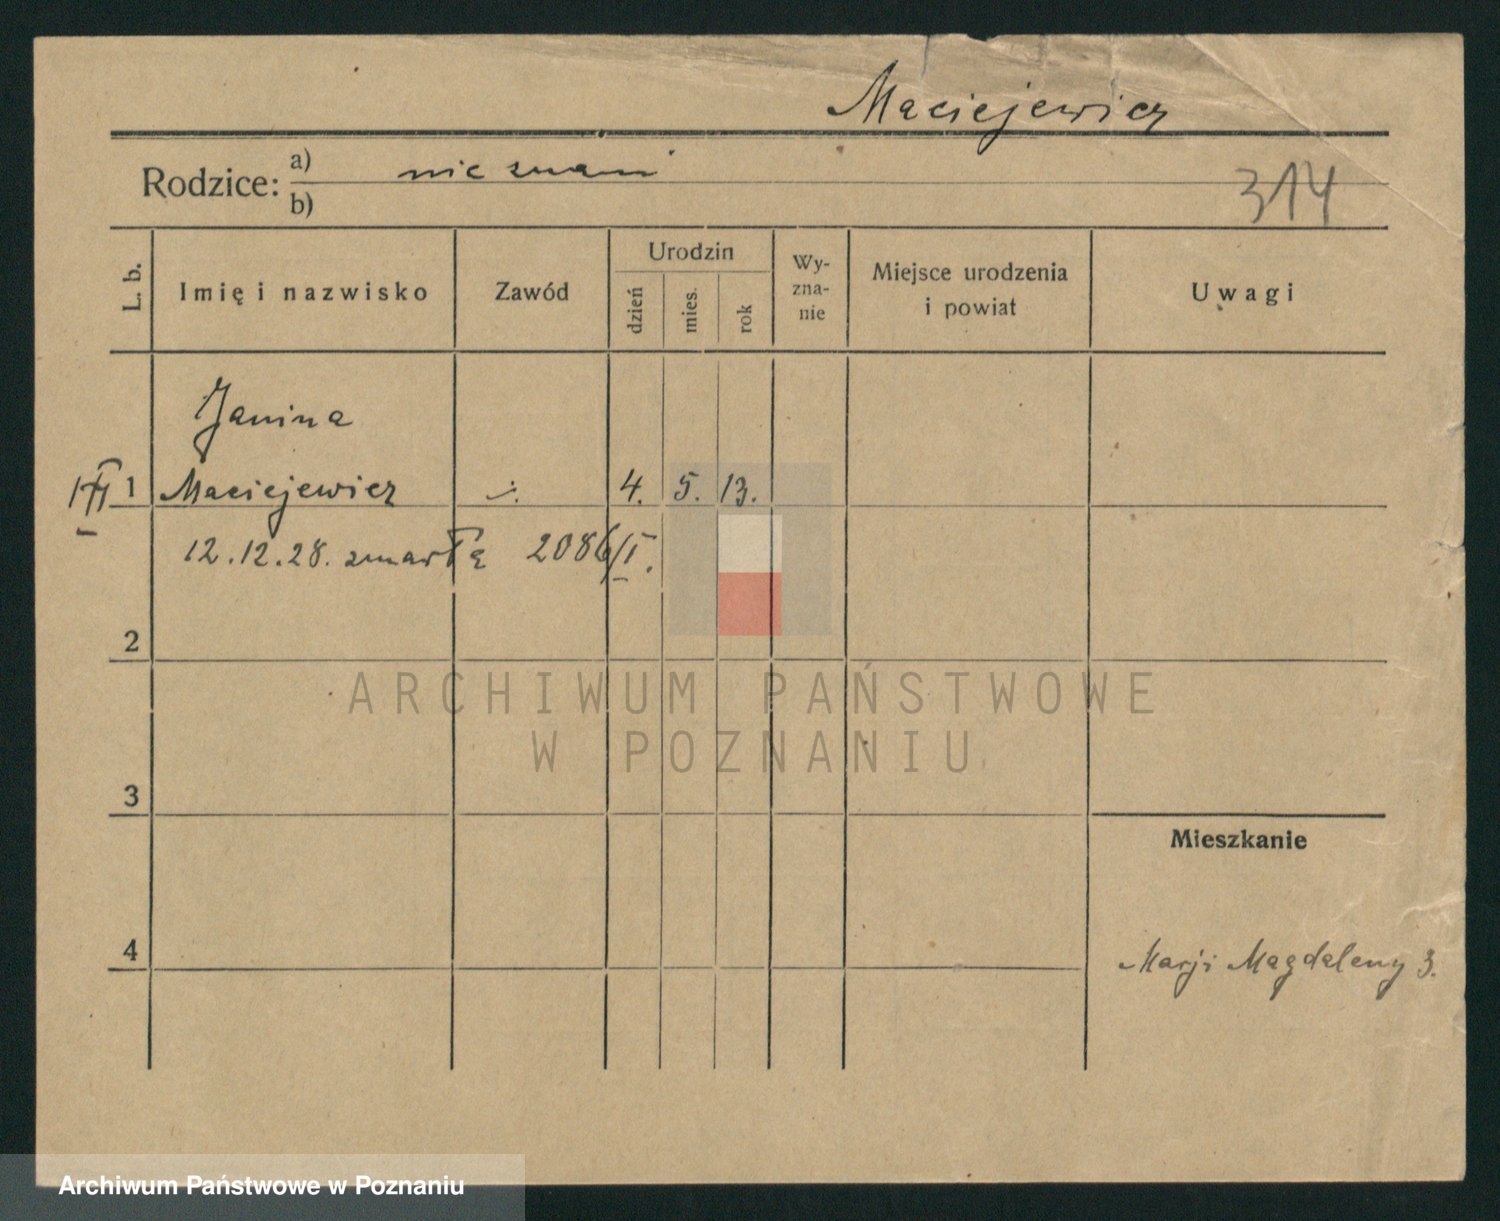 Maciejewicz
Rodzice: a) nie znani
b)
314
L. b.
Imię i nazwisko
Zawód
Urodzin
dzień
mies.
rok
Wy-
zna-
nie
Miejsce urodzenia
i powiat
Uwagi
Janina
1 Maciejewicz 4. 5. 13.
12.12.28. zmarła 2086/I.
2
ARCHIWUM PAŃSTWOWE
W POZNANIU
3
Mieszkanie
4
Marji Magdaleny 3.
Archiwum Państwowe w Poznaniu